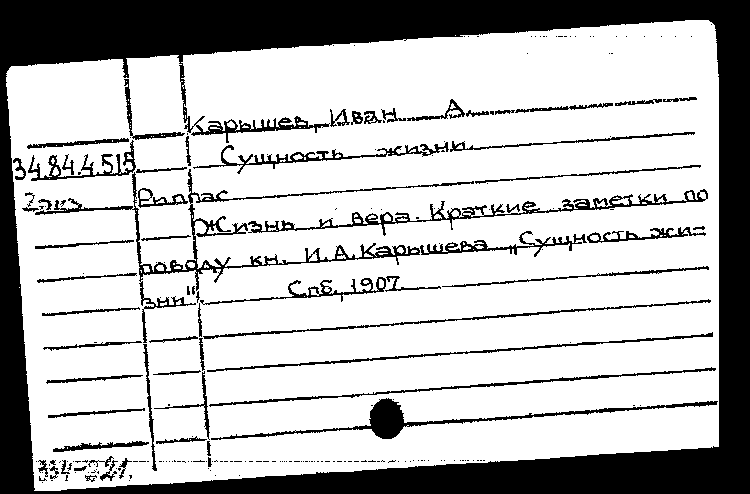 Карышев, Иван А.
34.84.4.515 Сущность жизни.
2 экз. Риппас
Жизнь и вера. Краткие заметки по
поводу кн. И.А. Карышева „Сущность жи-
зни" Спб., 1907
334-221.